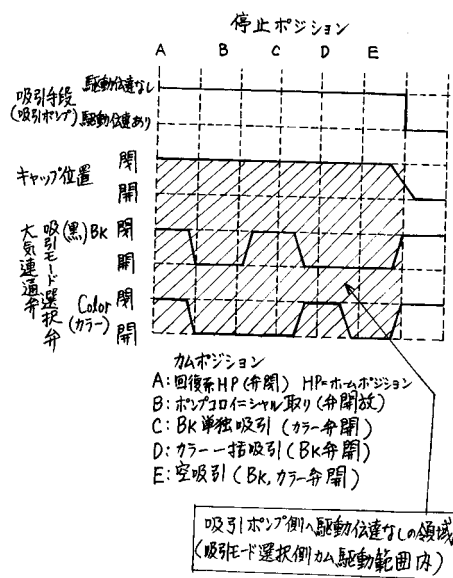 停止ポジション
A B C D E
吸引手段
(吸引ポンプ)
駆動伝達なし
駆動伝達あり
キャップ位置
閉
開
大気連通弁
吸引モード選択弁
(黒)Bk
閉
開
Color
(カラー)
閉
開
カムポジション
A:回復系HP(弁閉) HP=ホームポジション
B:ポンプコロイニシャル取り(弁開放)
C:BK単独吸引(カラー弁開)
D:カラー一括吸引(BK弁開)
E:空吸引(BK,カラー弁開)
吸引ポンプ側へ駆動伝達なしの領域
(吸引モード選択側カム駆動範囲内)